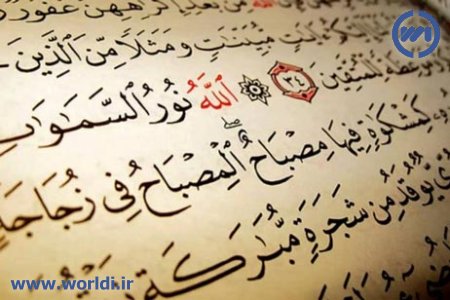 مِنۢ بَعْدِ إِكْرَٰهِهِنَّ غَفُورٌ
ءَايَٰتٍ مُّبَيِّنَٰتٍ وَمَثَلًا مِّنَ ٱلَّذِينَ
لِّلْمُتَّقِينَ ٣٤ ٱللَّهُ نُورُ ٱلسَّمَٰوَٰتِ
كَمِشْكَوٰةٍ فِيهَا مِصْبَاحٌ ٱلْمِصْبَاحُ فِى زُجَاجَةٍ
يُوقَدُ مِن شَجَرَةٍ مُّبَٰرَكَةٍ
www.worldi.ir